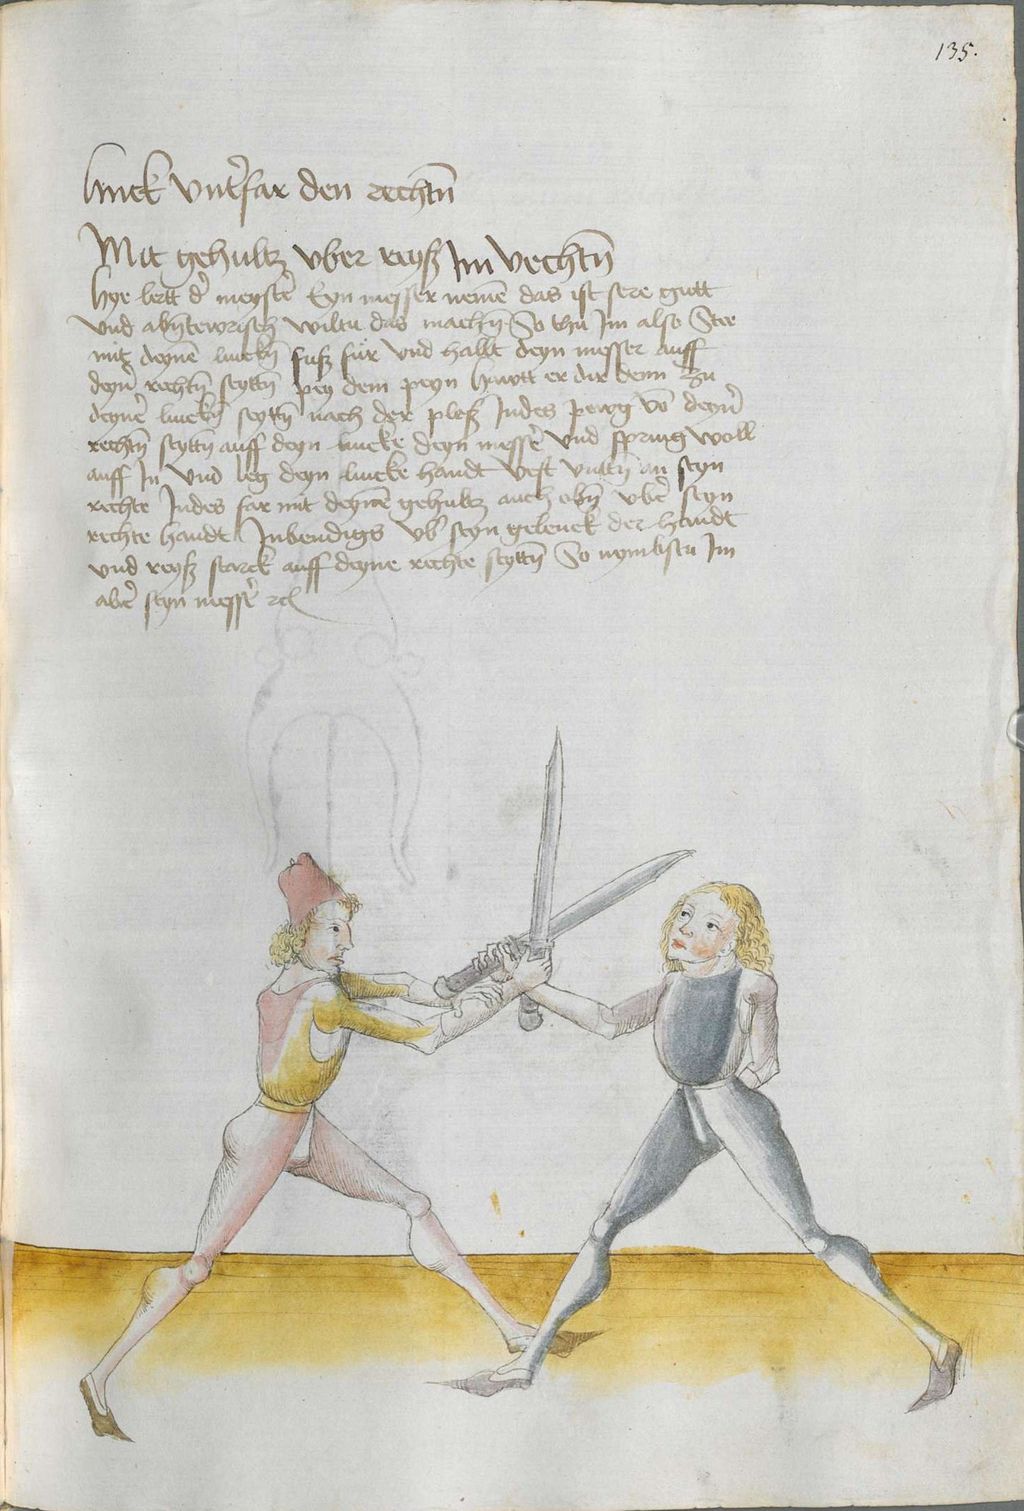 135.
linck vnt̄far den rechtn̄
Mit gehultz vber reyß Im vechtn̄
Hye lertt d̄ meystē Eyn messer nemē das ist sere gutt
vnd abn̄tewrisch wiltu das machn̄ So thu Im also Stee
mit deynē linckn̄ fuß für vnd hallt deyn messer auff
deyn̄ rechtn̄ seyttn̄ pey dem peyn hawtt er dir denn zu
deynē linckn̄ seyttn̄ nach der pleß Indes pewg vō deyn̄
rechtn̄ seyttn̄ auff deyn lincke deyn messē vnd spring woll
auff In vnd leg deyn lincke handt vest vnttn̄ an seyn
rechte Indes far mit deynē gehultz auch obn̄ vbē seyn
rechte handt Inbendigs vb̄ seyn gelenck der handt
vnd reyß starck auff deyne rechte seyttn̄ So nymbstu Im
abē seyn messē ⁊c